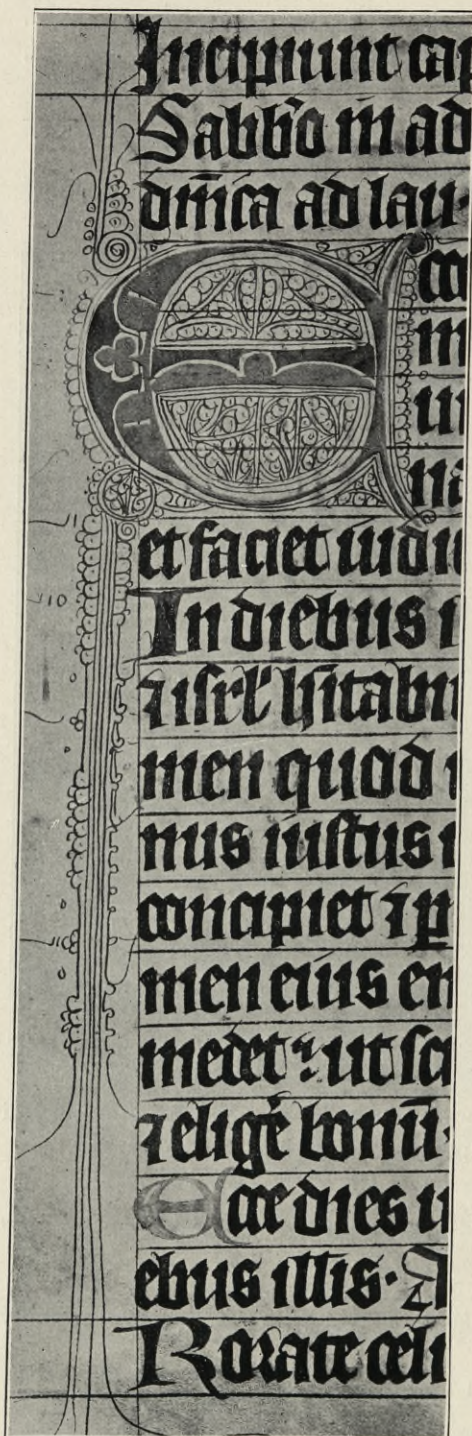 Incipiunt cap
Sabb̄o in ad
dm̄ica ad lau
E cc
m
ui
na
et faciet iudi
In diebus i
⁊ isrl̄ h̄itabi
men quod
nus iustus
concipiet ⁊ p
men eius em
medet · ut sci
⁊ eliḡe bonū·
Ecce dies u
ebus illis·
Rorate celi